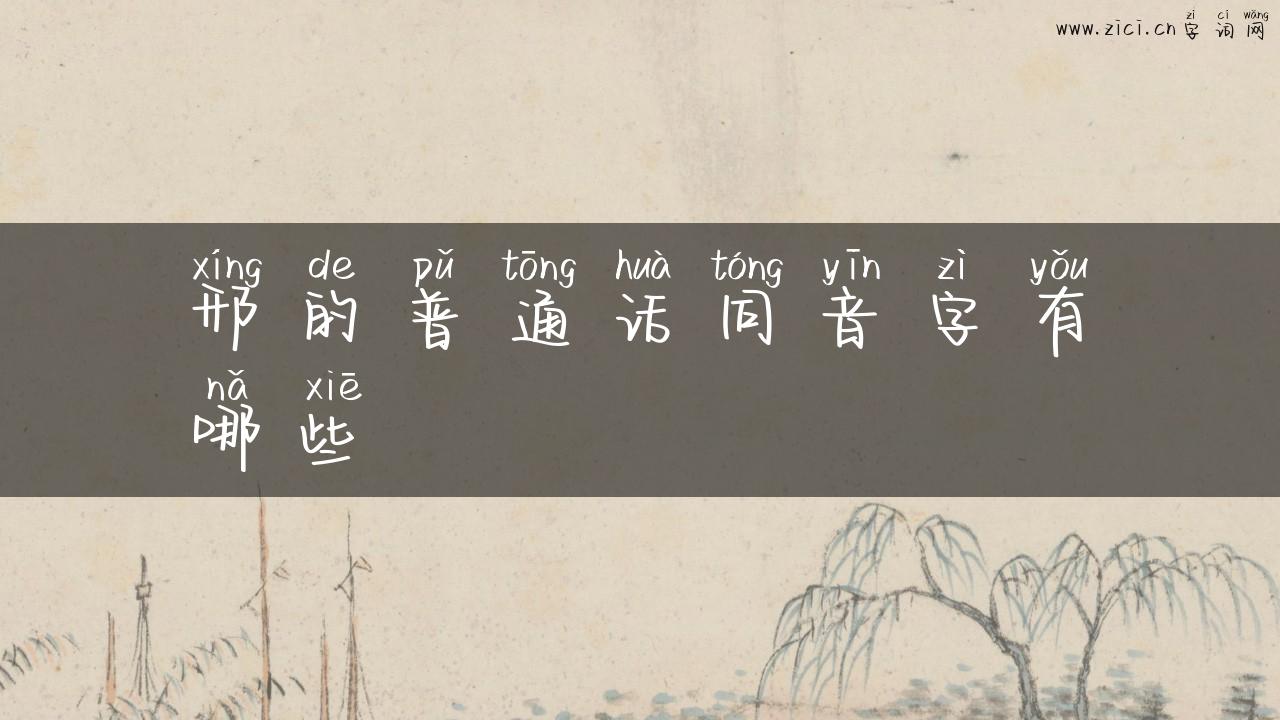 zì cí wǎng
www.zici.cn 字词网
xíng de pǔ tōng huà tóng yīn zì yǒu
邢的普通话同音字有
nǎ xiē
哪些